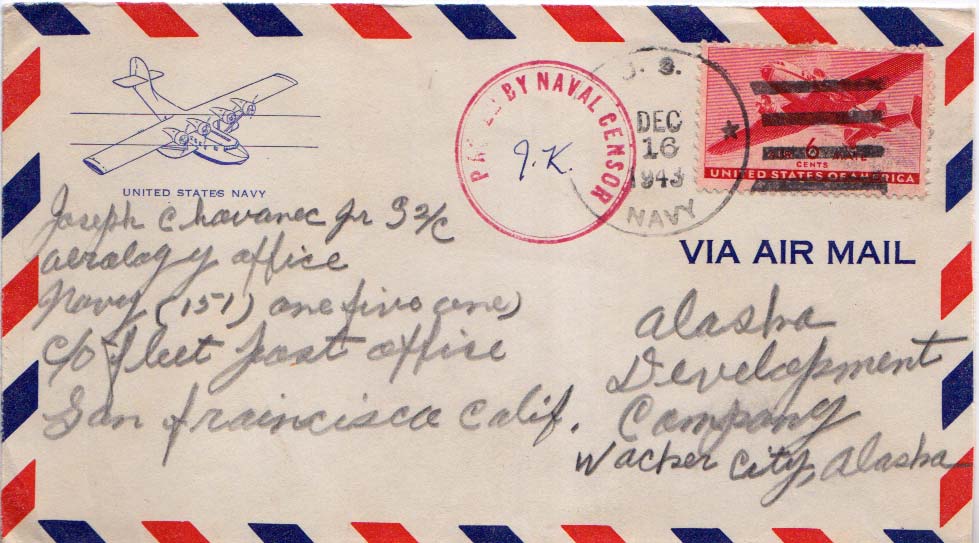 UNITED STATES NAVY
Joseph Chavanec Jr S2/C
aerology office
Navy (151) one five one)
c/o fleet post office
San Fraincisco Calif.
PASSED BY NAVAL CENSOR
J.K.
U. S.
DEC
16
1943
NAVY
6
CENTS
UNITED STATES OF AMERICA
VIA AIR MAIL
Alaska
Development
Company
Wacker City, Alaska